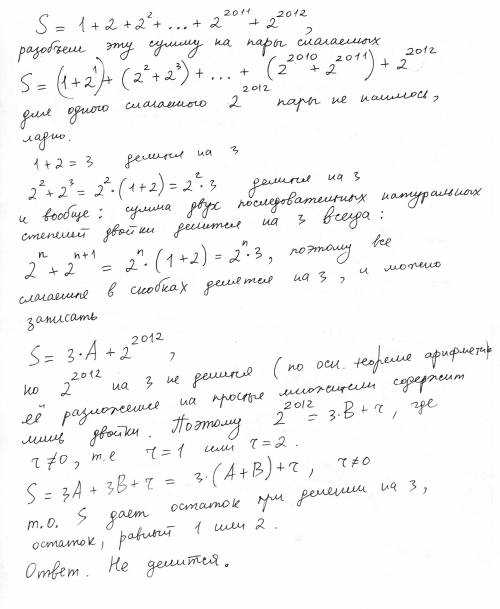 S = 1 + 2 + 2² + ... + 2²⁰¹¹ + 2²⁰¹²,
разобьем эту сумму на пары слагаемых
S = (1+2¹) + (2² + 2³) + ... + (2²⁰¹⁰ + 2²⁰¹¹) + 2²⁰¹²
для одного слагаемого 2²⁰¹² пары не нашлось,
ладно.
1 + 2 = 3 делится на 3
2² + 2³ = 2²·(1+2) = 2²·3 делится на 3
и вообще: сумма двух последовательных натуральных
степеней двойки делится на 3 всегда:
2ⁿ + 2ⁿ⁺¹ = 2ⁿ·(1+2) = 2ⁿ·3, поэтому все
слагаемые в скобках делятся на 3, и можно
записать
S = 3·A + 2²⁰¹²,
но 2²⁰¹² на 3 не делится (по осн. теореме арифметик
её разложение на простые множители содержит
лишь двойки. Поэтому 2²⁰¹² = 3·B + r, где
r≠0, т.е r=1 или r=2.
S = 3A + 3B + r = 3·(A+B) + r, r≠0
т.о. S дает остаток при делении на 3,
остаток, равный 1 или 2.
Ответ. Не делится.